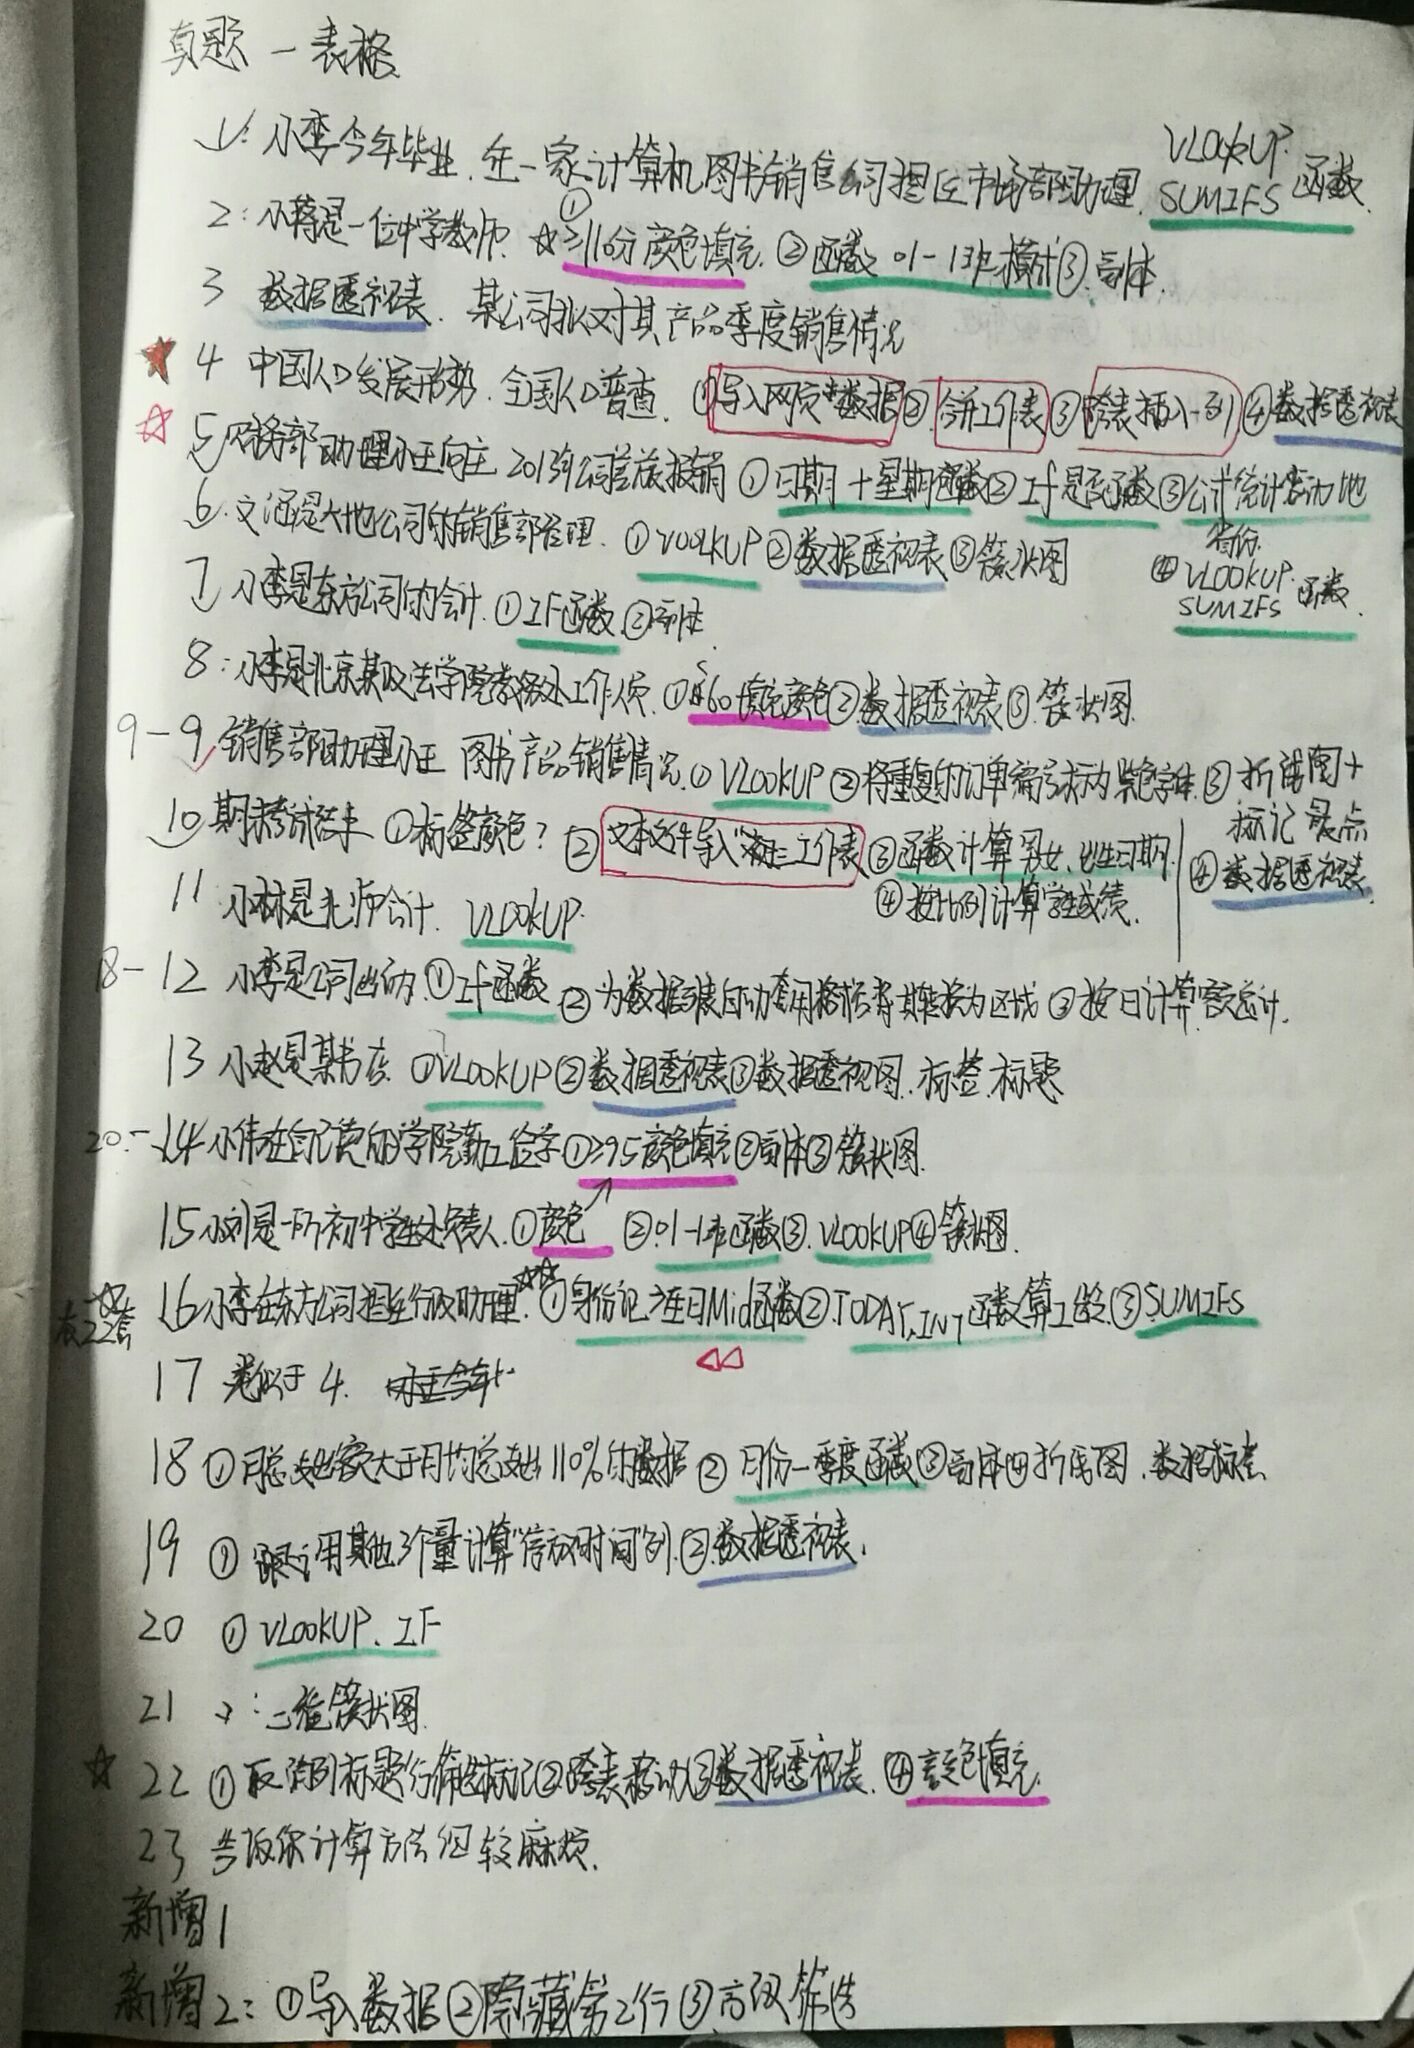 真题－表格
1. 小李今年毕业，在一家计算机图书销售公司担任市场部助理 VLOOKUP SUMIFS 函数
2：小蒋是一位中学教师. ☆①≥110分颜色填充 ②函数 01-1班 横计③副本.
3 数据透视表. 某公司拟对其产品季度销售情况
★ 4 中国人口发展形势. 全国人口普查. ①导入网页数据② 合并工作表③跨表插入一列④数据透视表
☆ 5 财务部助理小王向主 2013年公司差旅报销 ①日期＋星期函数②If是否函数③公式统计活动地
省份.
④VLOOKUP. SUMIFS 函数
6. 文涵是大地公司的销售部管理. ①VOOLKUP②数据透视表③簇状图
7 小李是东方公司的会计. ①IF函数 ②副本.
8：小李是北京某政法学院教务处工作人员. ①<60填充颜色②数据透视表③簇状图.
9－9 销售部助理小王 图书产品销售情况. ①VLOOKUP ②将重复的订单编号标为紫色字体. ③折线图＋
标记最点
④数据透视表
10 期末考试结束 ①标签颜色？ ②文本文件导入“初三”工作表 ③函数计算男女、出生日期.
④按比例计算学生成绩.
11 小林是北师会计. VLOOKUP.
18－12 小李是公司出纳. ①If函数 ②为数据表自动套用格式后将其转换为区域 ③按日计算金额总计.
13 小赵是某书店. ①VLOOKUP②数据透视表③数据透视图. 标签. 标题
20－14 小伟在自己读的学院勤工俭学①≥95颜色填充②副本③簇状图.
15 小刘是一所初中学生处负责人. ①颜色 ②01-1班函数③. VLOOKUP④簇状图.
☆ 16 小李在东方公司担任行政助理. ☆☆①身份证 生日Mid函数②. TODAY, INT函数算工龄. ③SUMIFS
17 类似于4.
18 ①月总支出额大于月均总支出110%的数据 ②月份－季度函数③副本④折线图. 数据标签
19 ① 用其他3个量计算“停放时间”列. ②数据透视表.
20 ①VLOOKUP、IF
21 二维簇状图.
☆ 22 ①取消列标题行筛选标记②跨表移动③数据透视表. ④颜色填充.
23 告诉你计算方法但较麻烦.
新增1
新增2：①导入数据②隐藏第2行③高级筛选